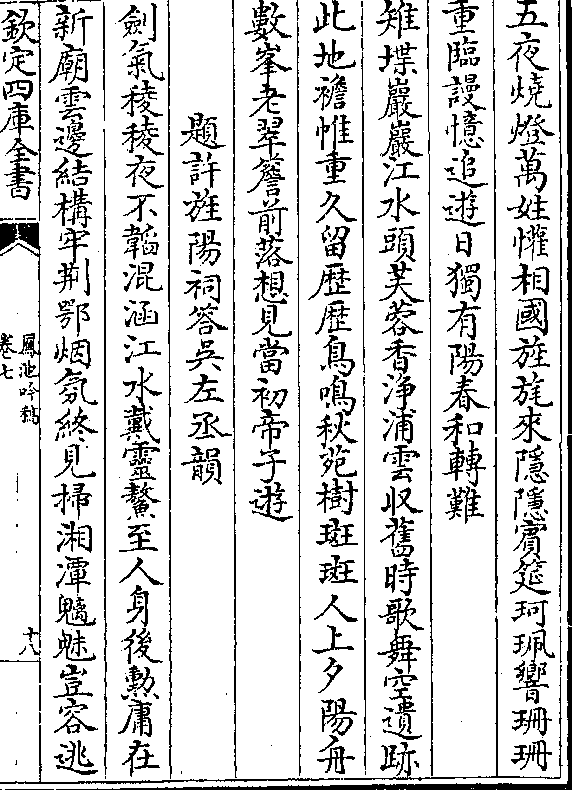 五夜燒燈萬姓懽相國旌旄來隱隱賓筵珂珮響珊珊
重臨謾憶追遊日獨有陽春和轉難
雉堞巖巖江水頭芙蓉香浄浦雲収舊時歌舞空遺跡
此地襜帷重久留歴歴鳥鳴秋苑樹斑斑人上夕陽舟
數峯老翠簷前落想見當初帝子遊
題許旌陽祠答吳左丞韻
劍氣稜稜夜不韜混涵江水戴靈鰲至人身後勲庸在
新廟雲邊結構牢荆鄂烟氛終見掃湘潭魑魅豈容逃
欽定四庫全書
鳳池吟稿
卷七
十八